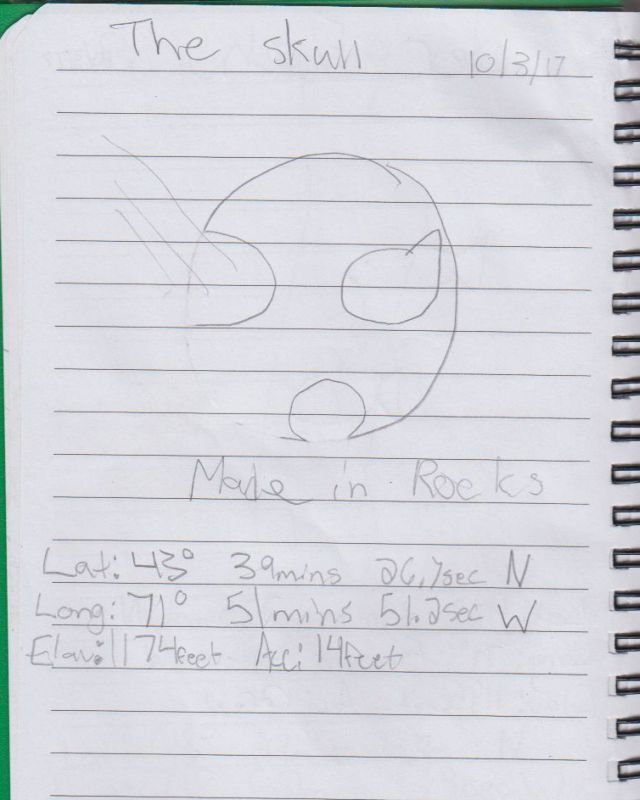 The skull 10/3/17
Made in Rocks
Lat: 43° 39mins 26.7sec N
Long: 71° 51mins 51.2sec W
Elav: 1174feet Acc: 14feet